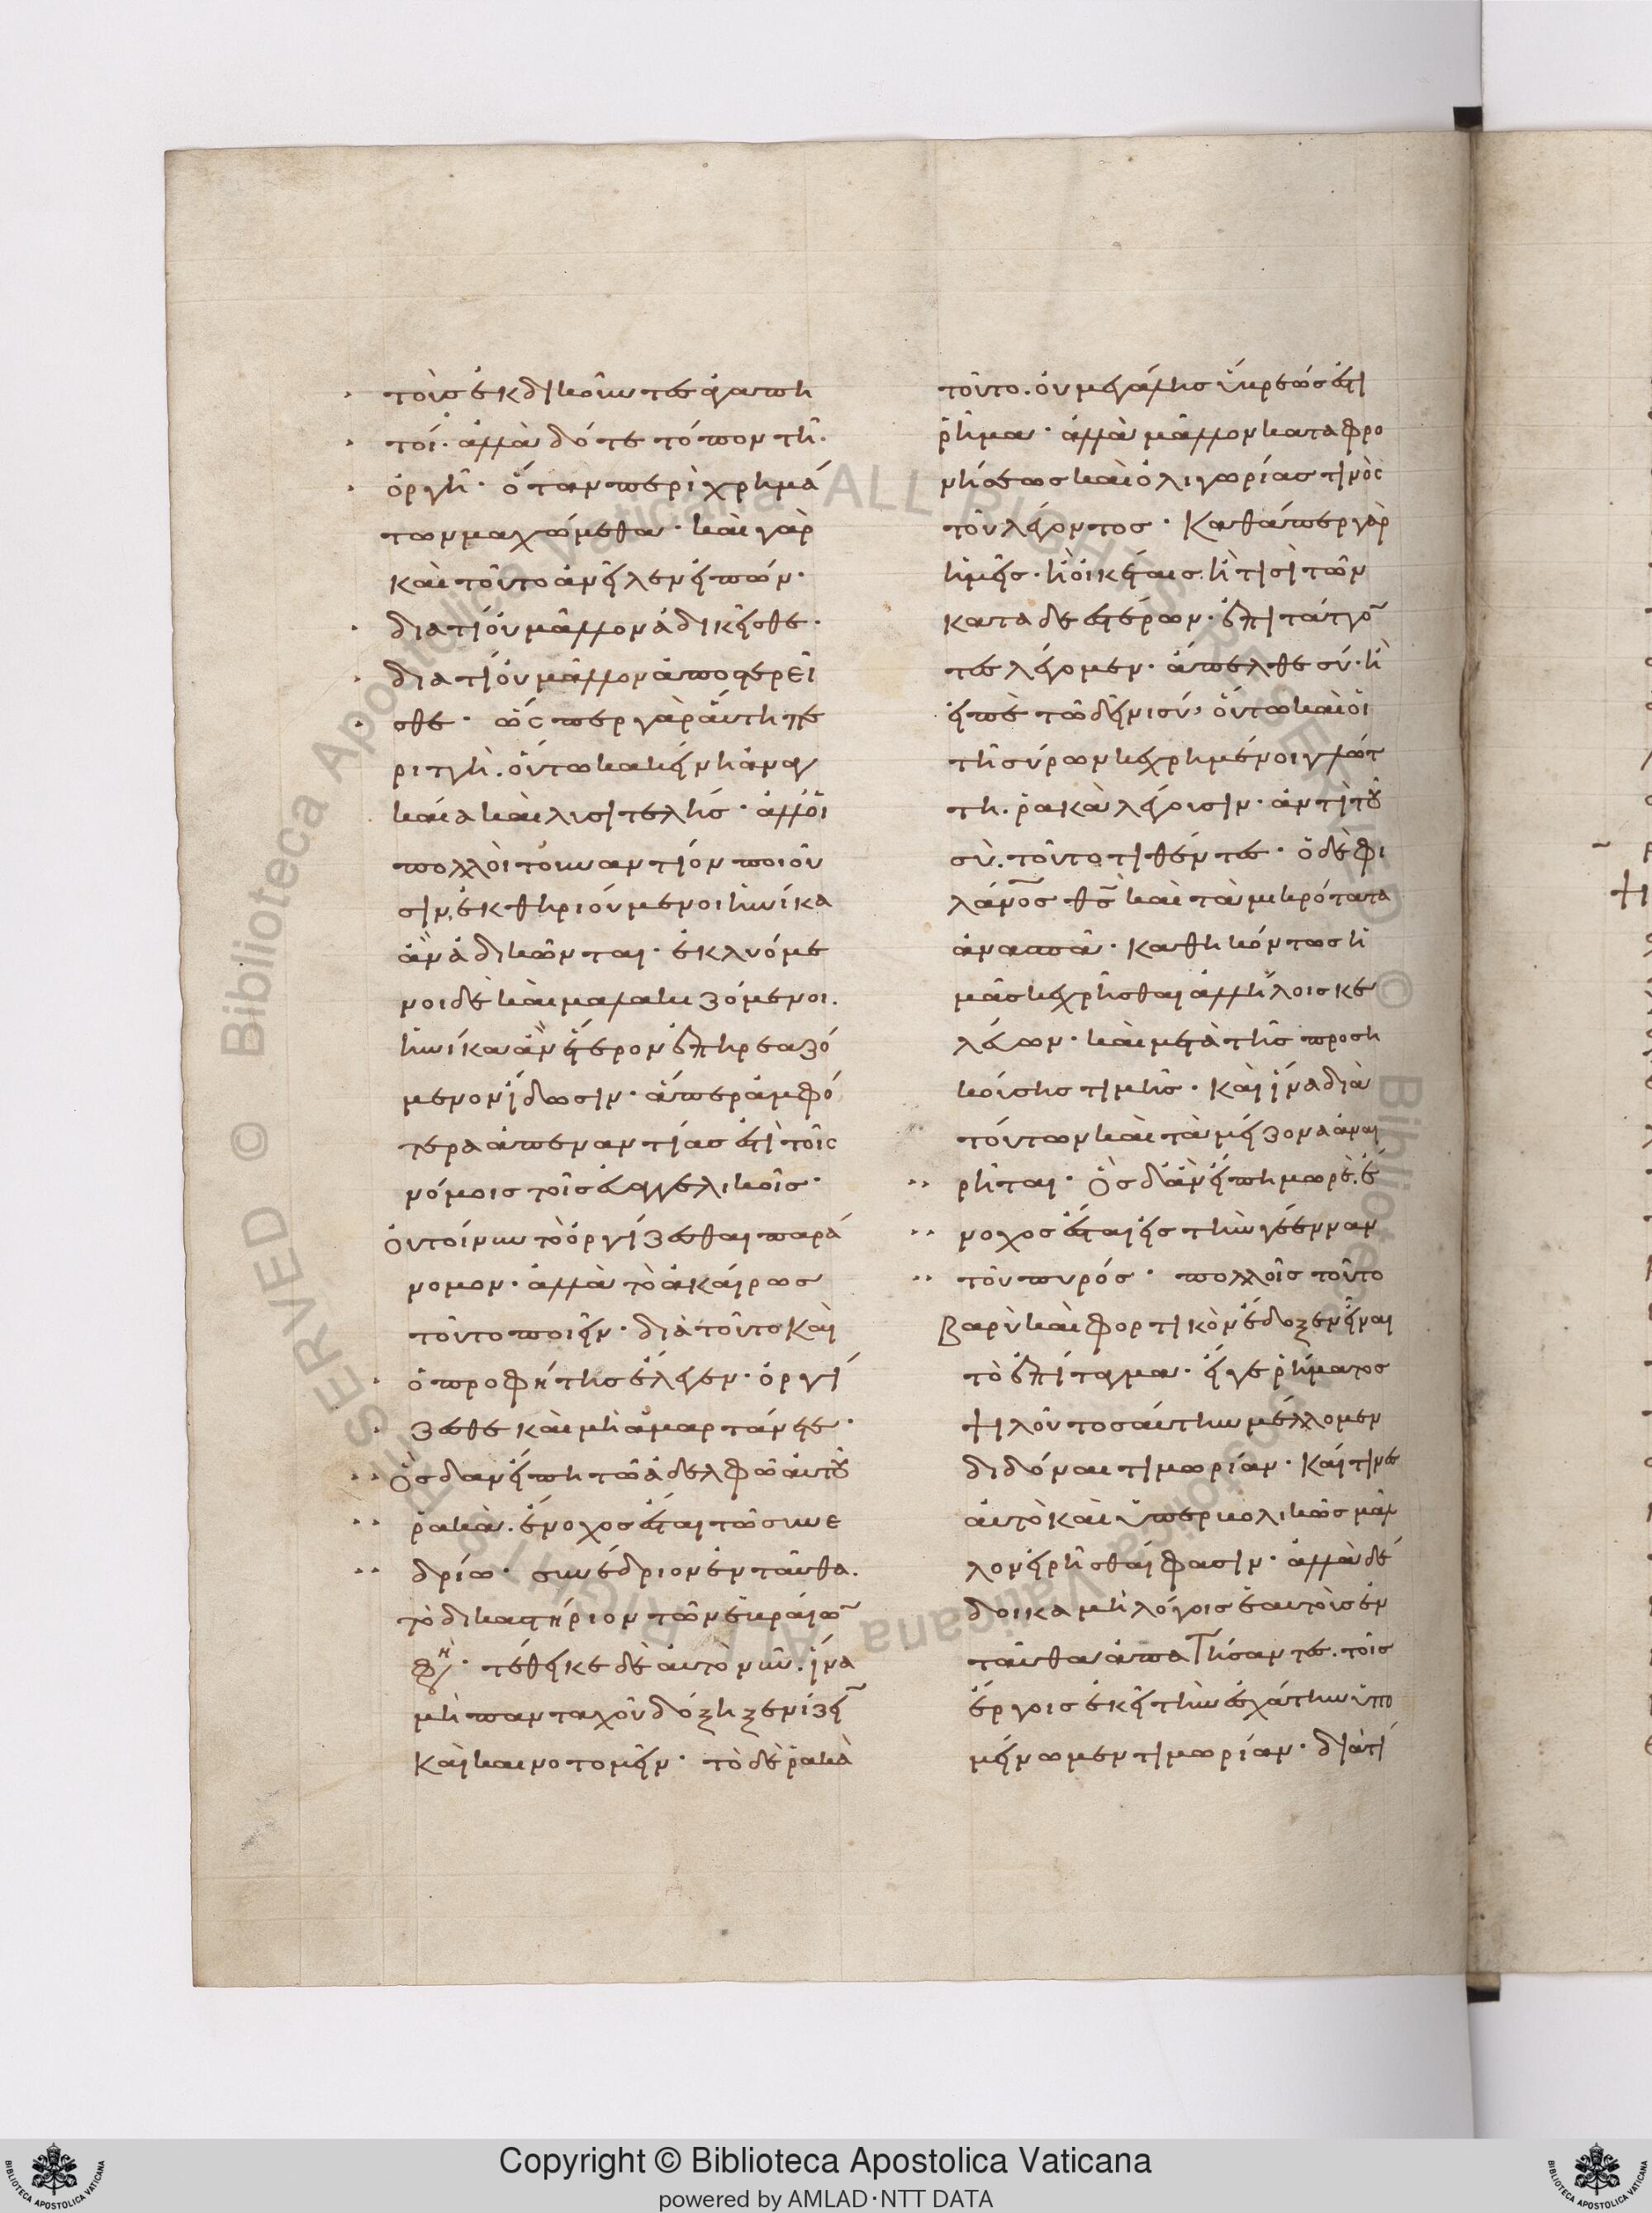 τοὺς ἐκδικοῦντες ἀγαπη
τοί· ἀλλὰ δότε τόπον τῆ
ὀργῆ· ὅταν περὶ χρημά
των μαχώμεθα· καὶ γὰρ
καὶ τοῦτο ἀνεῖλεν εἰπών·
διατί οὐ μᾶλλον ἀδικεῖσθε·
διατί οὐ μᾶλλον ἀποστερεῖ
σθε· ὥσπερ γὰρ αὕτη πε
ριττή. οὕτω κακείνη ἀναγ
καία καὶ λυσιτελής· ἀλλ' οἱ
πολλοὶ τοὐναντίον ποιοῦ
σιν, ἐκθηριούμενοι ἡνίκα
ἂν ἀδικῶνται· ἐκλυόμε
νοι δὲ καὶ μαλακιζόμενοι.
ἡνίκα ἂν ἕτερον ἐπηρεαζό
μενον ἴδωσιν· ἅπερ ἀμφό
τερα ἀπεναντίας ἐστὶ τοῖς
νόμοις τοῖς εὐαγγελικοῖς·
οὐ τοίνυν τὸ ὀργίζεσθαι παρά
νομον· ἀλλὰ τὸ ἀκαίρως
τοῦτο ποιεῖν· διὰ τοῦτο καὶ
ὁ προφήτης ἔλεγεν· ὀργί
ζεσθε καὶ μὴ ἁμαρτάνετε·
Ὃς δ' ἂν εἴπη τῶ ἀδελφῶ αὐτοῦ
ῥακὰ. ἔνοχος ἔσται τῶ συνε
δρίω· συνέδριον ἐνταῦθα.
τὸ δικαστήριον τῶν ἑβραίων
φη· τέθεικε δὲ αὐτὸ νῦν. ἵνα
μὴ πανταχοῦ δόξη ξενίζειν
καὶ καινοτομεῖν· τὸ δὲ ῥακὰ
τοῦτο. οὐ μεγάλης ὕβρεώς ἐστι
ῥῆμα· ἀλλὰ μᾶλλον καταφρο
νήσεως καὶ ὀλιγωρίας τινὸς
τοῦ λέγοντος· Καθάπερ γὰρ
ἡμεῖς· ἢ οἰκέταις. ἤ τισι τῶν
καταδεεστέρων· ἐπιτάττον
τες λέγομεν· ἄπελθε σύ· ἢ
εἰπὲ τῶ δεῖνι σύ· οὕτω καὶ οἱ
τῆ σύρων κεχρημένοι γλώτ
τη. ῥακὰ λέγουσιν· ἀντὶ τοῦ
σὺ. τοῦτο τιθέντες· ὁ δὲ φι
λάνος θς καὶ τὰ μικρότατα
ἀνασπᾶ· καθηκόντως ἡ
μᾶς κεχρῆσθαι ἀλλήλοις κε
λεύων· καὶ μετὰ τῆς προση
κούσης τιμῆς· καὶ ἵνα διὰ
τούτων καὶ τὰ μείζονα ἀναι
ρῆται· Ὃς δ' ἂν εἴπη μωρὲ. ἔ
νοχος ἔσται εἰς τὴν γέενναν
τοῦ πυρός· πολλοῖς τοῦτο
βαρὺ καὶ φορτικὸν ἔδοξεν εἶναι
τὸ ἐπίταγμα· εἴγε ῥήματος
ψιλοῦ τοσαύτην μέλλομεν
διδόναι τιμωρίαν· καί τινες
αὐτὸ καὶ ὑπερβολικῶς μᾶλ
λον εἰρῆσθαί φασιν· ἀλλὰ δέ
δοικα μὴ λόγοις ἑαυτοὺς ἐν
ταῦθα ἀπατήσαντες. τοῖς
ἔργοις ἐκεῖ τὴν ἐσχάτην ὑπο
μείνωμεν τιμωρίαν· διατί